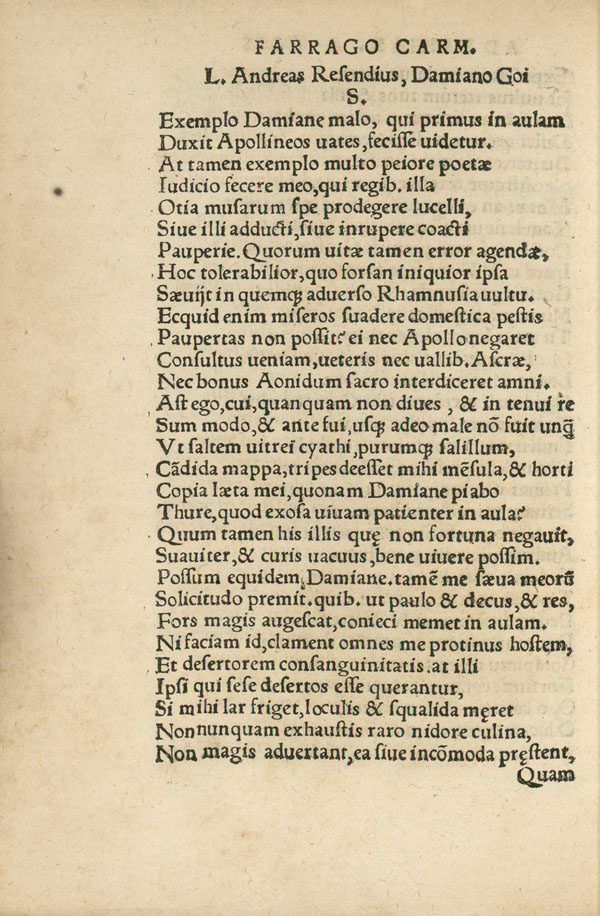 FARRAGO CARM.
L. Andreas Reſendius, Damiano Goi
S.
Exemplo Damiane malo, qui primus in aulam
Duxit Apollineos uates, feciſſe uidetur.
At tamen exemplo multo peiore poetæ
Iudicio fecere meo, qui regib. illa
Otia muſarum ſpe prodegere lucelli,
Siue illi adducti, ſiue inrupere coacti
Pauperie. Quorum uitæ tamen error agendæ,
Hoc tolerabilior, quo forſan iniquior ipſa
Sæuijt in quemqꝫ aduerſo Rhamnuſia uultu.
Ecquid enim miſeros ſuadere domeſtica peſtis
Paupertas non poſſit? ei nec Apollo negaret
Conſultus ueniam, ueteris nec uallib. Aſcræ,
Nec bonus Aonidum ſacro interdiceret amni.
Aſt ego, cui, quanquam non diues, & in tenui re
Sum modo, & ante fui, uſqꝫ adeo male nõ fuit unq̃
Vt ſaltem uitrei cyathi, purumqꝫ ſalillum,
Cãdida mappa, tripes deeſſet mihi mẽſula, & horti
Copia læta mei, quonam Damiane piabo
Thure, quod exoſa uiuam patienter in aula?
Quum tamen his illis quę non fortuna negauit,
Suauiter, & curis uacuus, bene uiuere poſſim.
Poſſum equidem, Damiane. tamẽ me ſæua meorũ
Solicitudo premit. quib. ut paulo & decus, & res,
Fors magis augeſcat, conieci memet in aulam.
Ni faciam id, clament omnes me protinus hoſtem,
Et deſertorem conſanguinitatis. at illi
Ipſi qui ſeſe deſertos eſſe querantur,
Si mihi lar friget, loculis & ſqualida męret
Non nunquam exhauſtis raro nidore culina,
Non magis aduertant, ea ſiue incõmoda pręſtent,
Quam